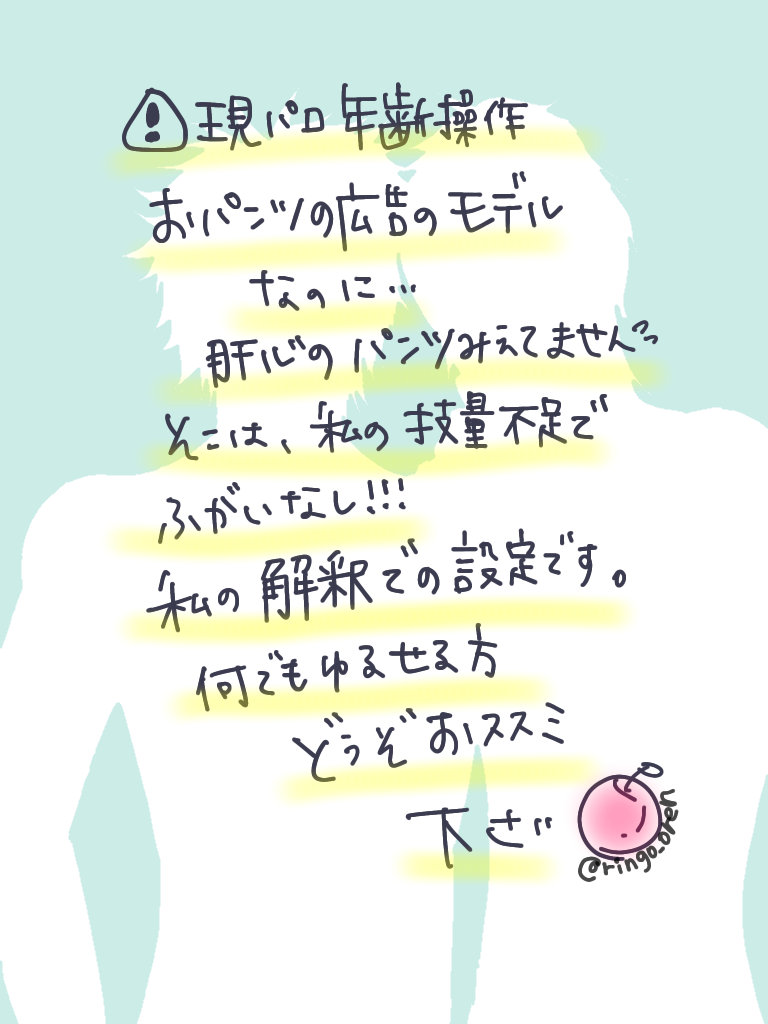 現パロ 年齢操作
おパンツの広告のモデル
なのに…
肝心のパンツみえてません
そこは、私の技量不足で
ふがいなし!!!
私の解釈での設定です。
何でもゆるせる方
どうぞおススミ
下さい
@ringo_oren